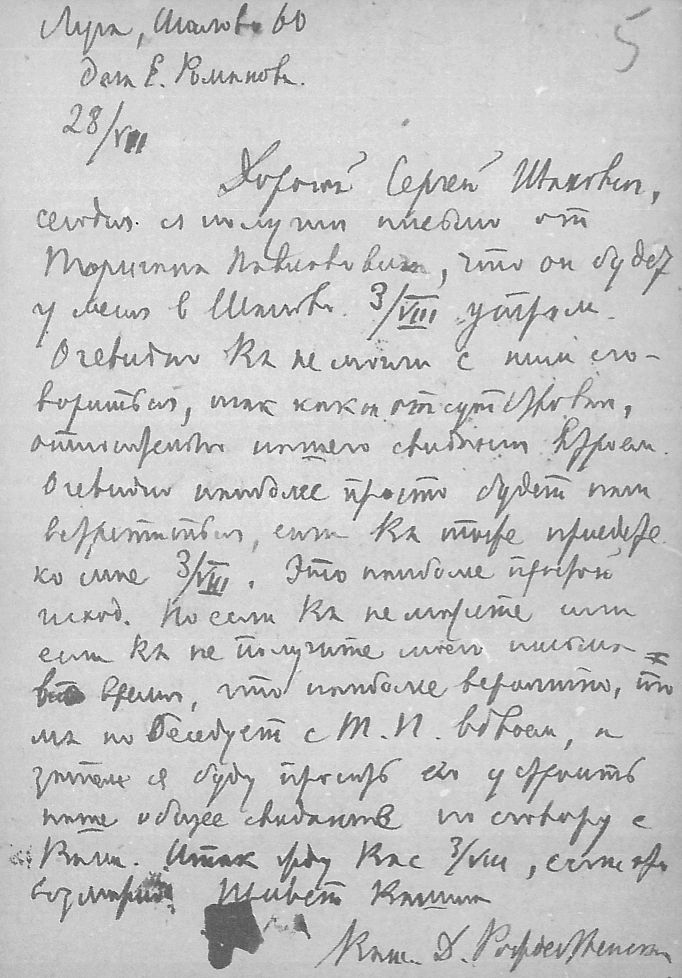 Луга, Шалово 60
дача Е. Романова.
28/VII
5
Дорогой Сергей
сегодня я получил письмо от
что он будет
у меня в Шалово 3/VIII утром.
Очевидно Вы не могли с ним сго-
вориться, так как он отсутствовал,
относительно нашего свидания втроем.
Очевидно наиболее просто будет нам
встретиться, если Вы тоже приедете
ко мне 3/VIII. Это наиболее простой
исход. Но если Вы не можете или
если Вы не получите моего письма
во время, что наиболее вероятно, то
мы побеседуем с Т. П. вдвоем, а
затем я буду просить его устроить
наше общее свидание по сговору с
Вами. Итак жду Вас 3/VIII, если это
возможно. Привет Вашим
Ваш Д. Рождественский